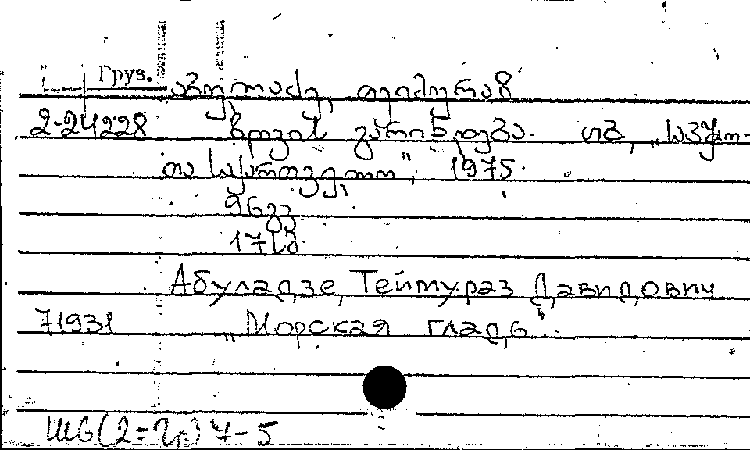 Груз.
აბულაძე, თეიმურაზ
2-24228 ზღვის გარინდება. თბ., „საბჭო-
თა საქართველო", 1975.
96გვ
17სმ
Абуладзе, Теймураз Давидович
71931 „Морская гладь"..
Ш6(2=Гр)7-5